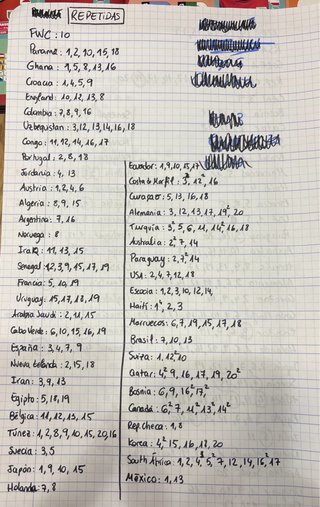 REPETIDAS
FWC: 10
Panamá: 1, 2, 10, 15, 18
Ghana: 1, 5, 8, 13, 16
Croacia: 1, 4, 5, 9
England: 10, 12, 13, 8
Colombia: 7, 8, 9, 16
Uzbequistan: 3, 12, 13, 14, 16, 18
Congo: 11, 12, 14, 16, 17
Portugal: 2, 8, 18
Jordania: 4, 13
Austria: 1, 2, 4, 6
Algeria: 8, 9, 15
Argentina: 7, 16
Noruega: 8
Iraq: 11, 13, 15
Senegal: 1, 2, 3, 9, 15, 17, 19
Francia: 5, 10, 19
Uruguay: 15, 17, 18, 19
Arabia Saudi: 2, 11, 15
Cabo Verde: 6, 10, 15, 16, 19
España: 3, 4, 7, 9
Nueva Zelanda: 2, 15, 18
Iran: 3, 9, 13
Egipto: 5, 18, 19
Bélgica: 11, 12, 13, 15
Túnez: 1, 2, 8, 9, 10, 15, 20, 16
Suecia: 3, 5
Japón: 1, 9, 10, 15
Holanda: 7, 8
Ecuador: 1, 9, 10, 15, 17
Costa de Marfil: 3², 12², 16
Curaçao: 5, 13, 16, 18
Alemania: 3, 12, 13, 17, 19², 20
Turquía: 3², 5, 6, 11, 14², 16, 18
Australia: 2², 7, 14
Paraguay: 2, 7², 14
USA: 2, 4, 7, 12, 18
Escocia: 1, 2, 3, 10, 12, 14,
Haití: 1², 2, 3
Marruecos: 6, 7, 19, 15, 17, 18
Brasil: 7, 10, 13
Suiza: 1, 12², 10
Qatar: 4², 9, 16, 17, 19, 20²
Bosnia: 6, 9, 16², 17²
Canadá: 6², 7, 11², 13², 14²
Rep Checa: 1, 8
Korea: 4², 15, 16, 18, 20
South África: 1, 2, 4, 5², 7, 12, 14, 16², 17
México: 1, 13